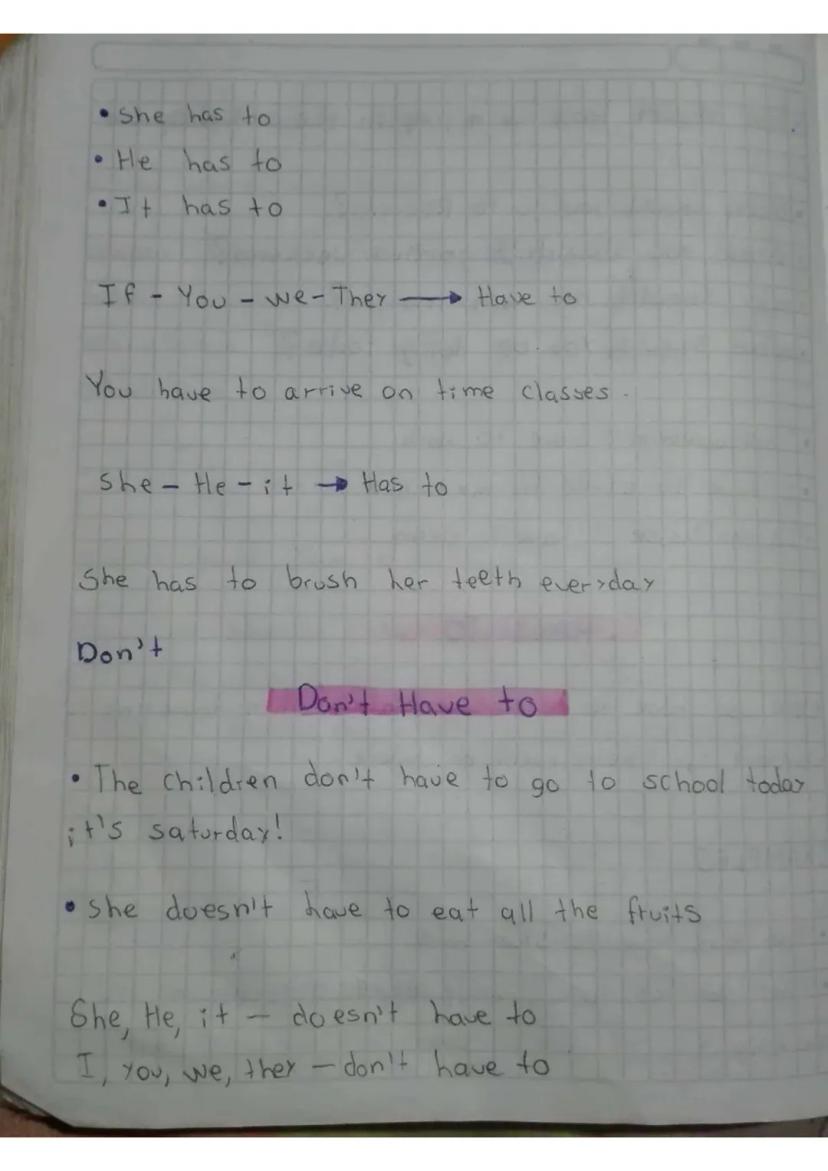 • She has to
• He has to
• It has to
If - You - we - They → Have to
You have to arrive on time classes.
She - He - it → Has to
She has to brush her teeth everyday
Don't
Don't Have to
• The children don't have to go to school today
it's saturday!
• She doesn't have to eat all the fruits
She, He, it - doesn't have to
I, you, we, they - don't have to